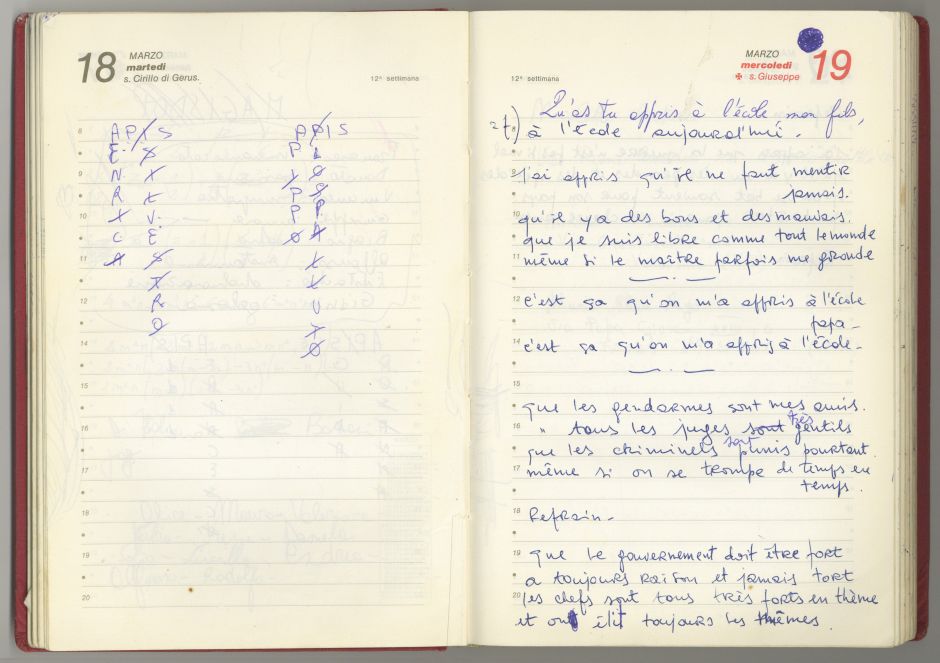 18
MARZO
martedì
s. Cirillo di Gerus.
12ª settimana
8 APIS APIS
E S P
9 N I I O
R L P
10 I V. P P
C E O A
11 A S L
T
12 R U
O
14 O
15
16
17
18
19
20
12ª settimana
MARZO
mercoledì
s. Giuseppe
19
7) Qu'as tu appris à l'école mon fils,
8 à l'école aujourd'hui -
9 J'ai appris qu'il ne faut mentir
jamais.
10 qu'il y a des bons et des mauvais.
que je suis libre comme tout le monde
11 même si le maître parfois me gronde
12 c'est ça qu'on m'a appris à l'école
papa -
14 c'est ça qu'on m'a appris à l'école -
15
que les gendarmes sont mes amis.
16 " tous les juges sont très gentils
que les criminels sont punis pourtant.
17 même si on se trompe de temps en
temps.
18 Refrain -
19 que le gouvernement doit être fort
a toujours raison et jamais tort
20 les chefs sont tous très forts en thème
et on élit toujours les mêmes.